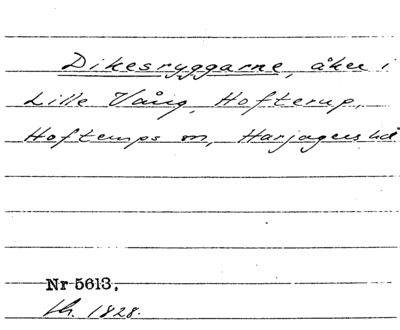 Dikesryggarne, åker i
Lille Vång, Hofterup,
Hofterups sn, Harjagers hd
Nr 5613.
1828.